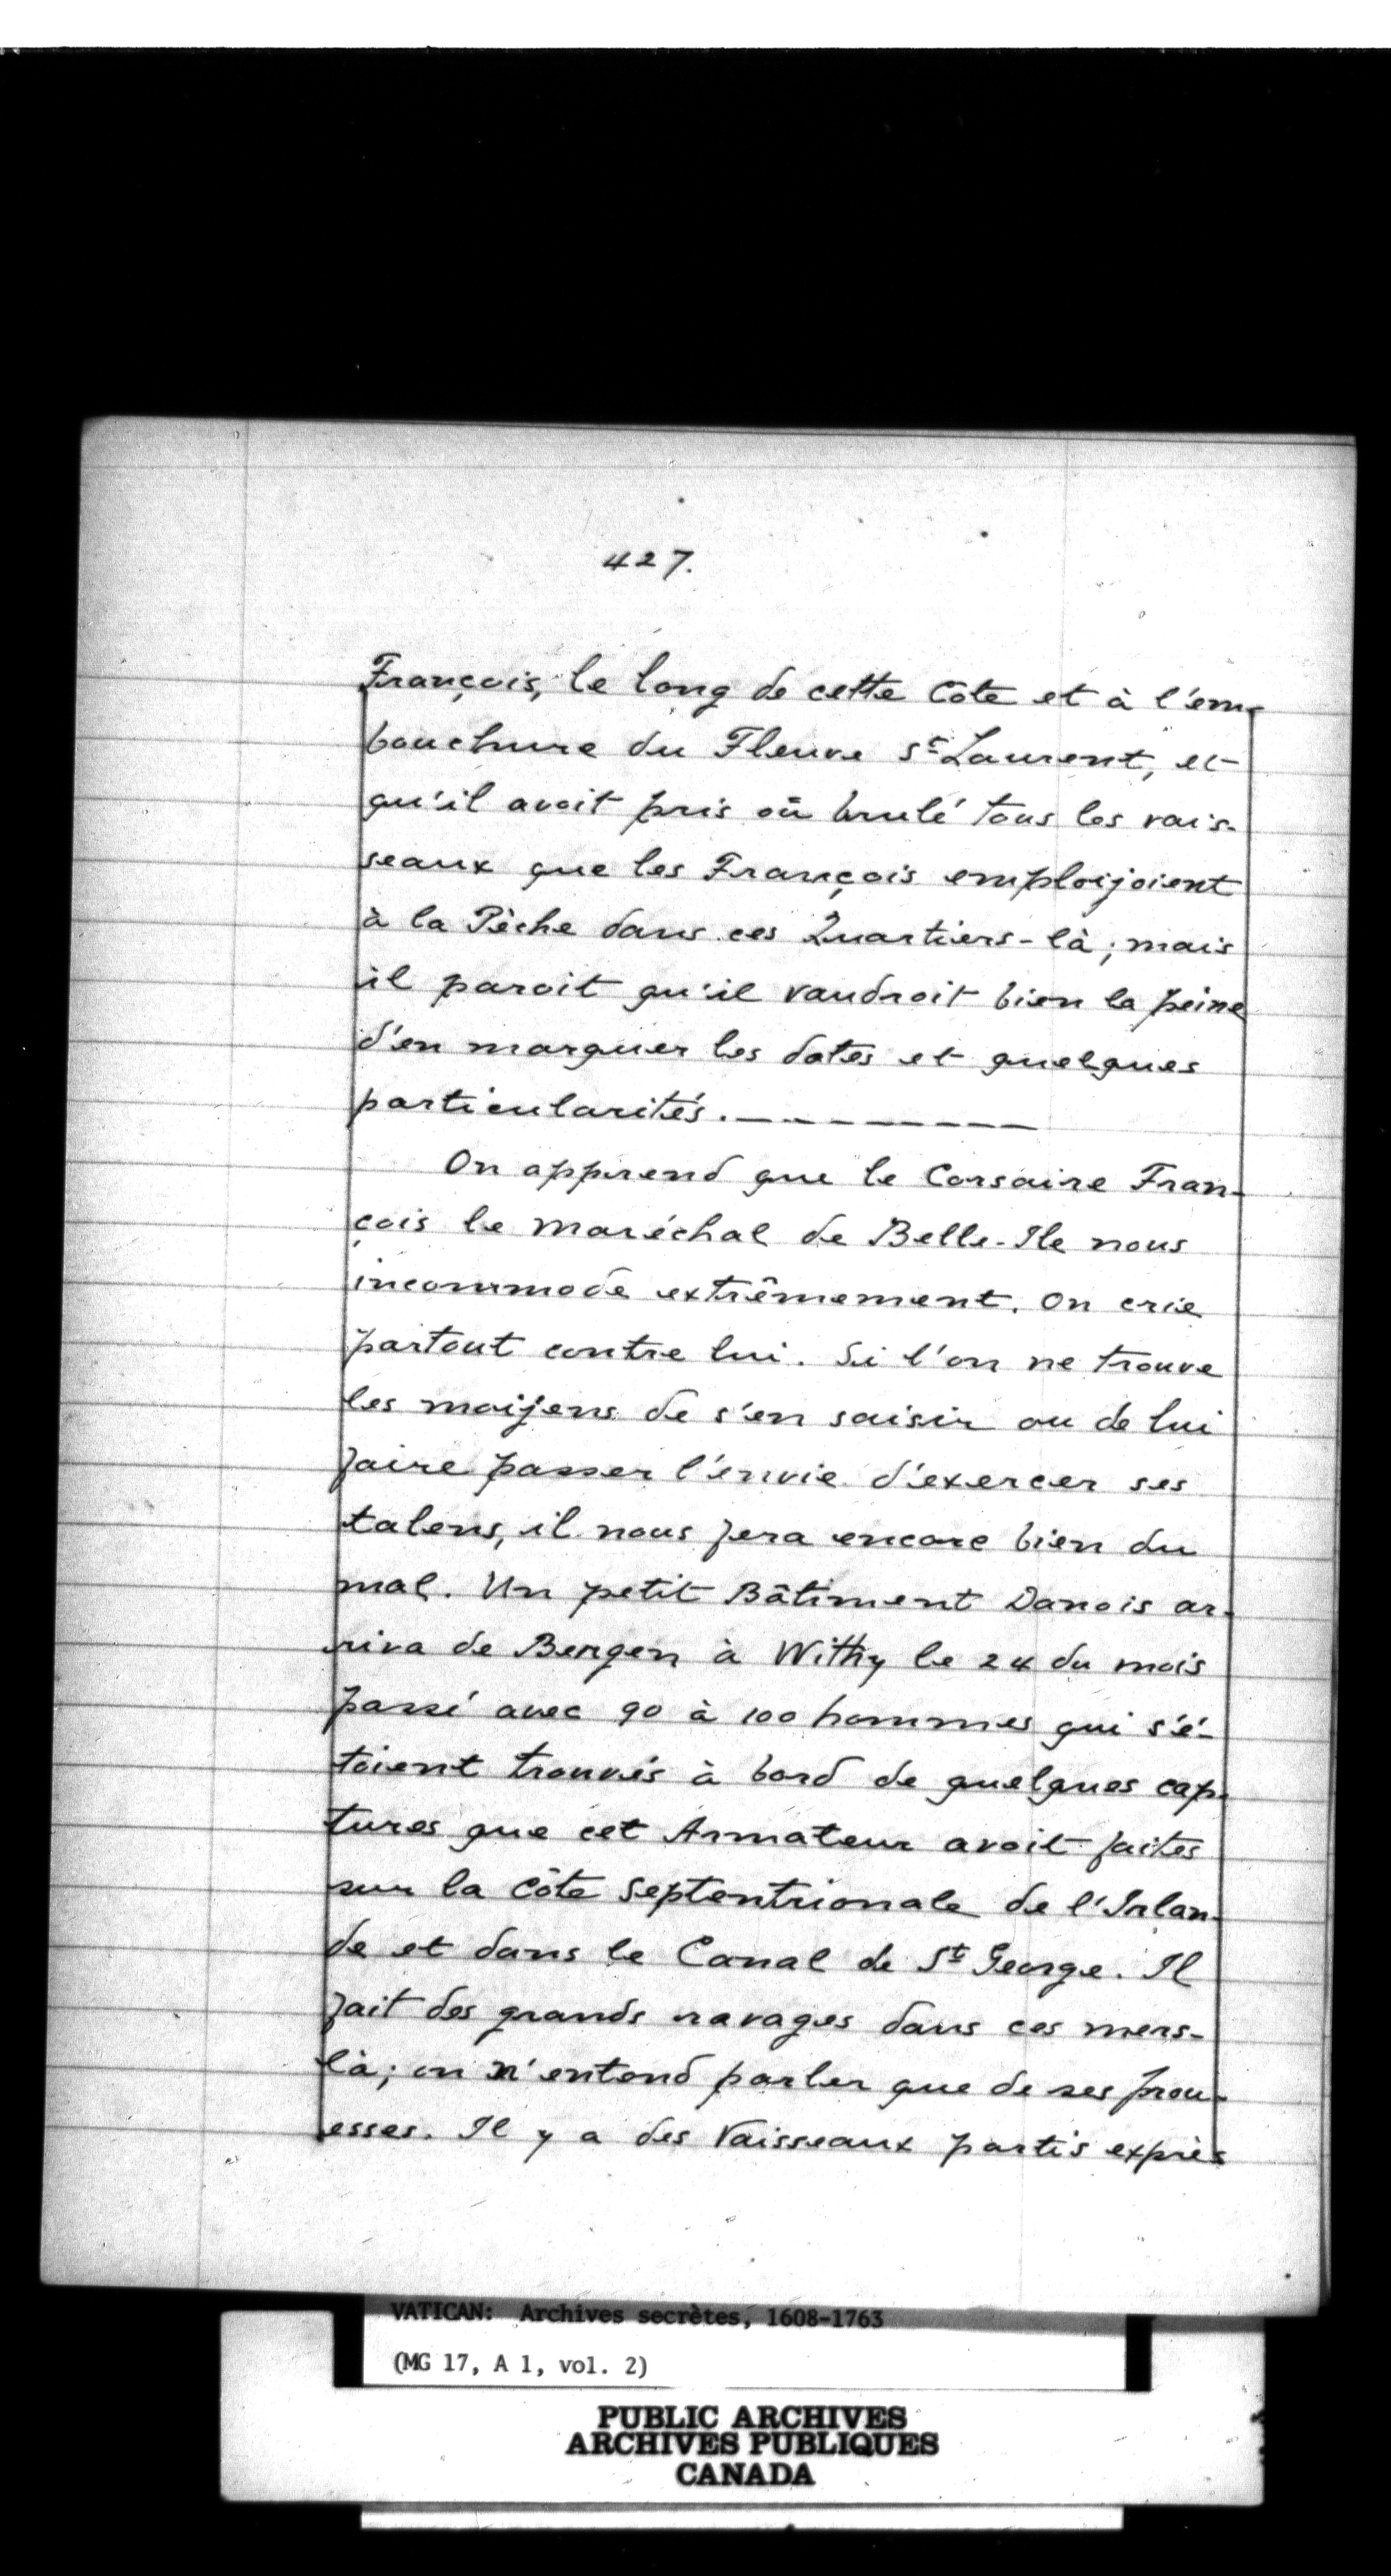 427.
François, le long de cette Côte et à l'em-
bouchure du Fleuve St Laurent, et
qu'il avoit pris où brulé tous les vais-
seaux que les François emploijoient
à la Pèche dans ces Quartiers-là; mais
il paroit qu'il vaudroit bien la peine
d'en marquer les dates et quelques
particularités. — — — — — —
On apprend que le Corsaire Fran-
çois le Maréchal de Belle-Ile nous
incommode extrêmement. On crie
partout contre lui. Si l'on ne trouve
les moijens de s'en saisir ou de lui
faire passer l'envie d'exercer ses
talens, il nous fera encore bien du
mal. Un petit Bâtiment Danois ar-
riva de Bergen à Withy le 24 du mois
passé avec 90 à 100 hommes qui s'é-
toient trouvés à bord de quelques cap-
tures que cet Armateur avoit faites
sur la Côte Septentrionale de l'Irlan-
de et dans le Canal de St George. Il
fait des grands ravages dans ces mers-
là; on n'entend parler que de ses prou-
esses. Il y a des Vaisseaux partis exprès
VATICAN: Archives secrètes, 1608-1763
(MG 17, A 1, vol. 2)
PUBLIC ARCHIVES
ARCHIVES PUBLIQUES
CANADA